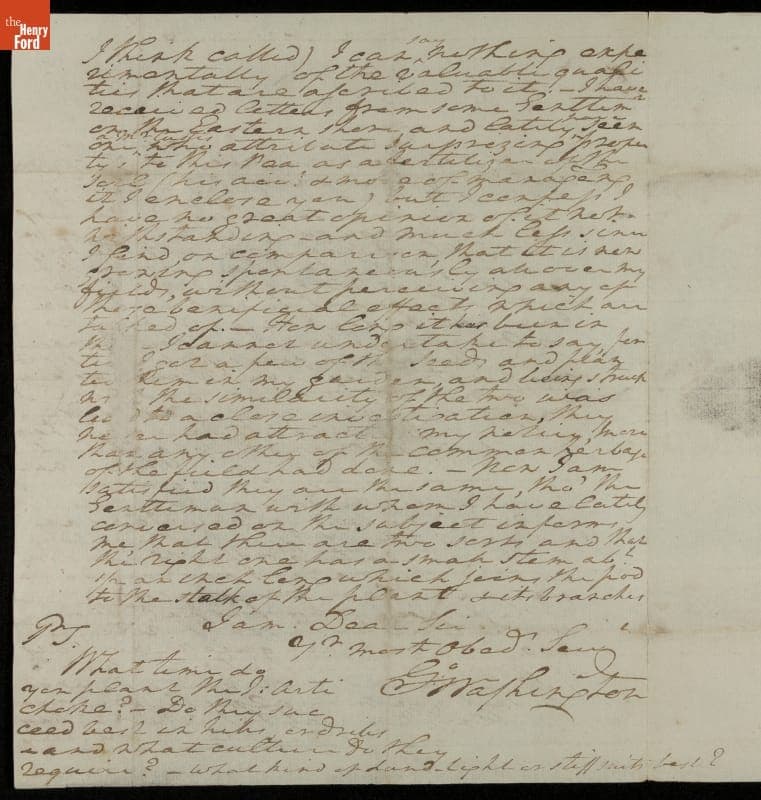 the Henry Ford
I think called) I can say nothing expe
rimentally of the valuable quali
ties that are ascribed to it. - I have
received letters from some Gentlem
on the Eastern shore and lately seen
one who attribute surprizing proper
ties to this Pea as a fertilizer of the
soil (his acct & mode of managing
it I enclose you) but I confess I
have no great opinion of it not-
withstanding - and much less since
I find, on comparison, that it is now
growing spontaneously all over my
fields, without perceiving any of
those beneficial effects which are
talked of. - How long it has been in
I cannot undertake to say
I got a few of the seeds and plan
ted them in my garden, and being struck
the similarity of the two was
led to a close investigation, they
never had attracted my notice, more
than any other of the common herbage
of the field had done. - Now I am
satisfied they are the same, tho' the
Gentleman with whom I have lately
conversed on the subject informs
me that there are two sorts and that
the right one has a small stem abt
an inch long which joins the pod
to the stalk of the plant & its branches
I am - Dear Sir
Yr most Obedt Servt
Go Washington
What time do
you plant the J: Arti
choke? - Do they suc
ceed best in hills, or drills
- and what culture do they
require? - what kind of land - light or stiff suits best?